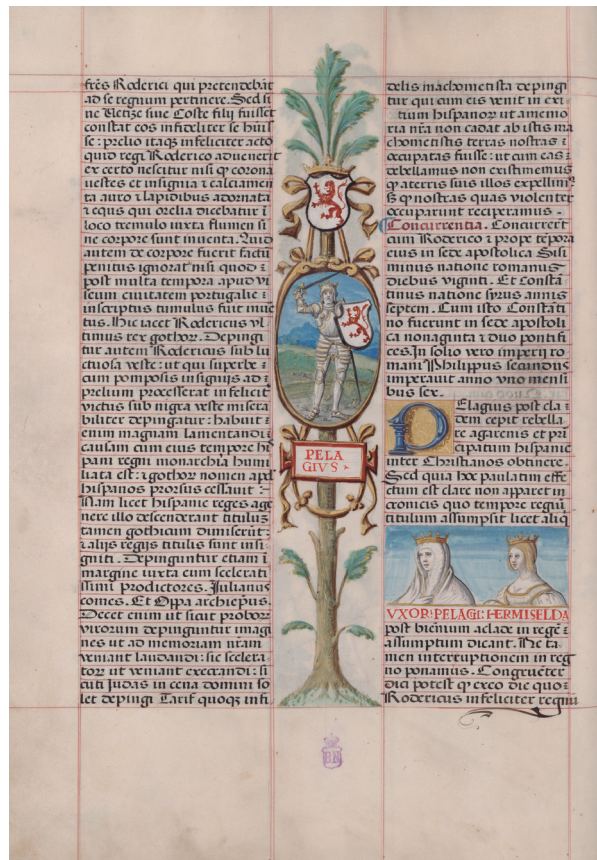 frēs Roderici qui pretendebāt
ad se regnum pertinere. Sed si
ne Vetize siue Coste filij fuisset
constat eos infideliter se hūis
se: prelio itaq̄ infeliciter acto
quid regi Roderico aduenerit
ex certo nescitur nisi q̄ corona
uestes et insignia ⁊ calciamen
ta auro ⁊ lapidibus adornata
⁊ equs qui orelia dicebatur ī
loco tremulo iuxta flumen si
ne corpore sunt inuenta. Quid
autem de corpore fuerit factū
penitus ignorat nisi quod ⁊
post multa tempora apud vi
seum ciuitatem portugalie ⁊
inscriptus tumulus fuit inuē
tus. Hic iacet Rodericus vl
timus rex gothor. Depingi
tur autem Rodericus sub lu
ctuosa veste: ut qui superbe ⁊
cum pomposis insignijs ad ⁊
prelium processerat infelicit
victus sub nigra veste misera
biliter depingatur: habuit ⁊
enim magnam lamentandi ⁊
causam cum eius tempore hi
pani regni monarchia humi
liata est: ⁊ gothor nomen apd
hispanos prorsus cessauit:
Nam licet hispanie reges age
nere illo descenderant titulūz
tamen gothicum dimiserūt:
⁊ alijs regijs titulis sunt insi
gniti. Depinguntur etiam ī
margine iuxta eum scelerati
ssimi proditores. Julianus
comes. Et Oppa archiep̄us.
Decet enim ut sicut probor
virorum depinguntur imagi
nes ut ad memoriam nr̄am
veniant laudandi: sic scelera
tor ut veniant execrandi: si
cuti Judas in cena domini so
let depingi Tarif quoq̄ infi
PELA
GIVS
delis machometista depingi
tur qui cum eis venit in exi
tium hispanor ut amemo
ria nr̄a non cadat ab istis ma
chometistis terras nostras ⁊
occupatas fuisse: ut cum eas ⁊
rebellamus non existimemus
q̄ aterris suis illos expellim
s q̄ nostras quas violenter
occuparunt recuperamus.
Concurrentia. Concurrert
cum Roderico ⁊ prope tēpora
eius in sede apostolica Sisi
minus natione romanus
diebus viginti. Et Consta
tinus natione syrus annis
septem. Cum isto Constati
no fuerunt in sede apostoli
ca nonaginta ⁊ duo pontifi
ces. In solio vero imperij ro
mani Philippus secundus
imperauit anno vno mensi
bus sex.
Pelagius post cla
dem cepit rebella
re agarenis et pri
cipatum hispanie
inter Christianos obtinere.
Sed quia hoc paulatim effe
ctum est clare non apparet in
cronicis quo tempore regiū
titulum assumpsit licet aliq
VXOR: PELAGII: HERMISELDA
post bienium aclade in regē ⁊
assumptum dicant. Ne ta
men interruptionem in reg
no ponamus. Congrueter
dici potest q̄ exeo die quo ⁊
Rodericus infeliciter regnū
BN